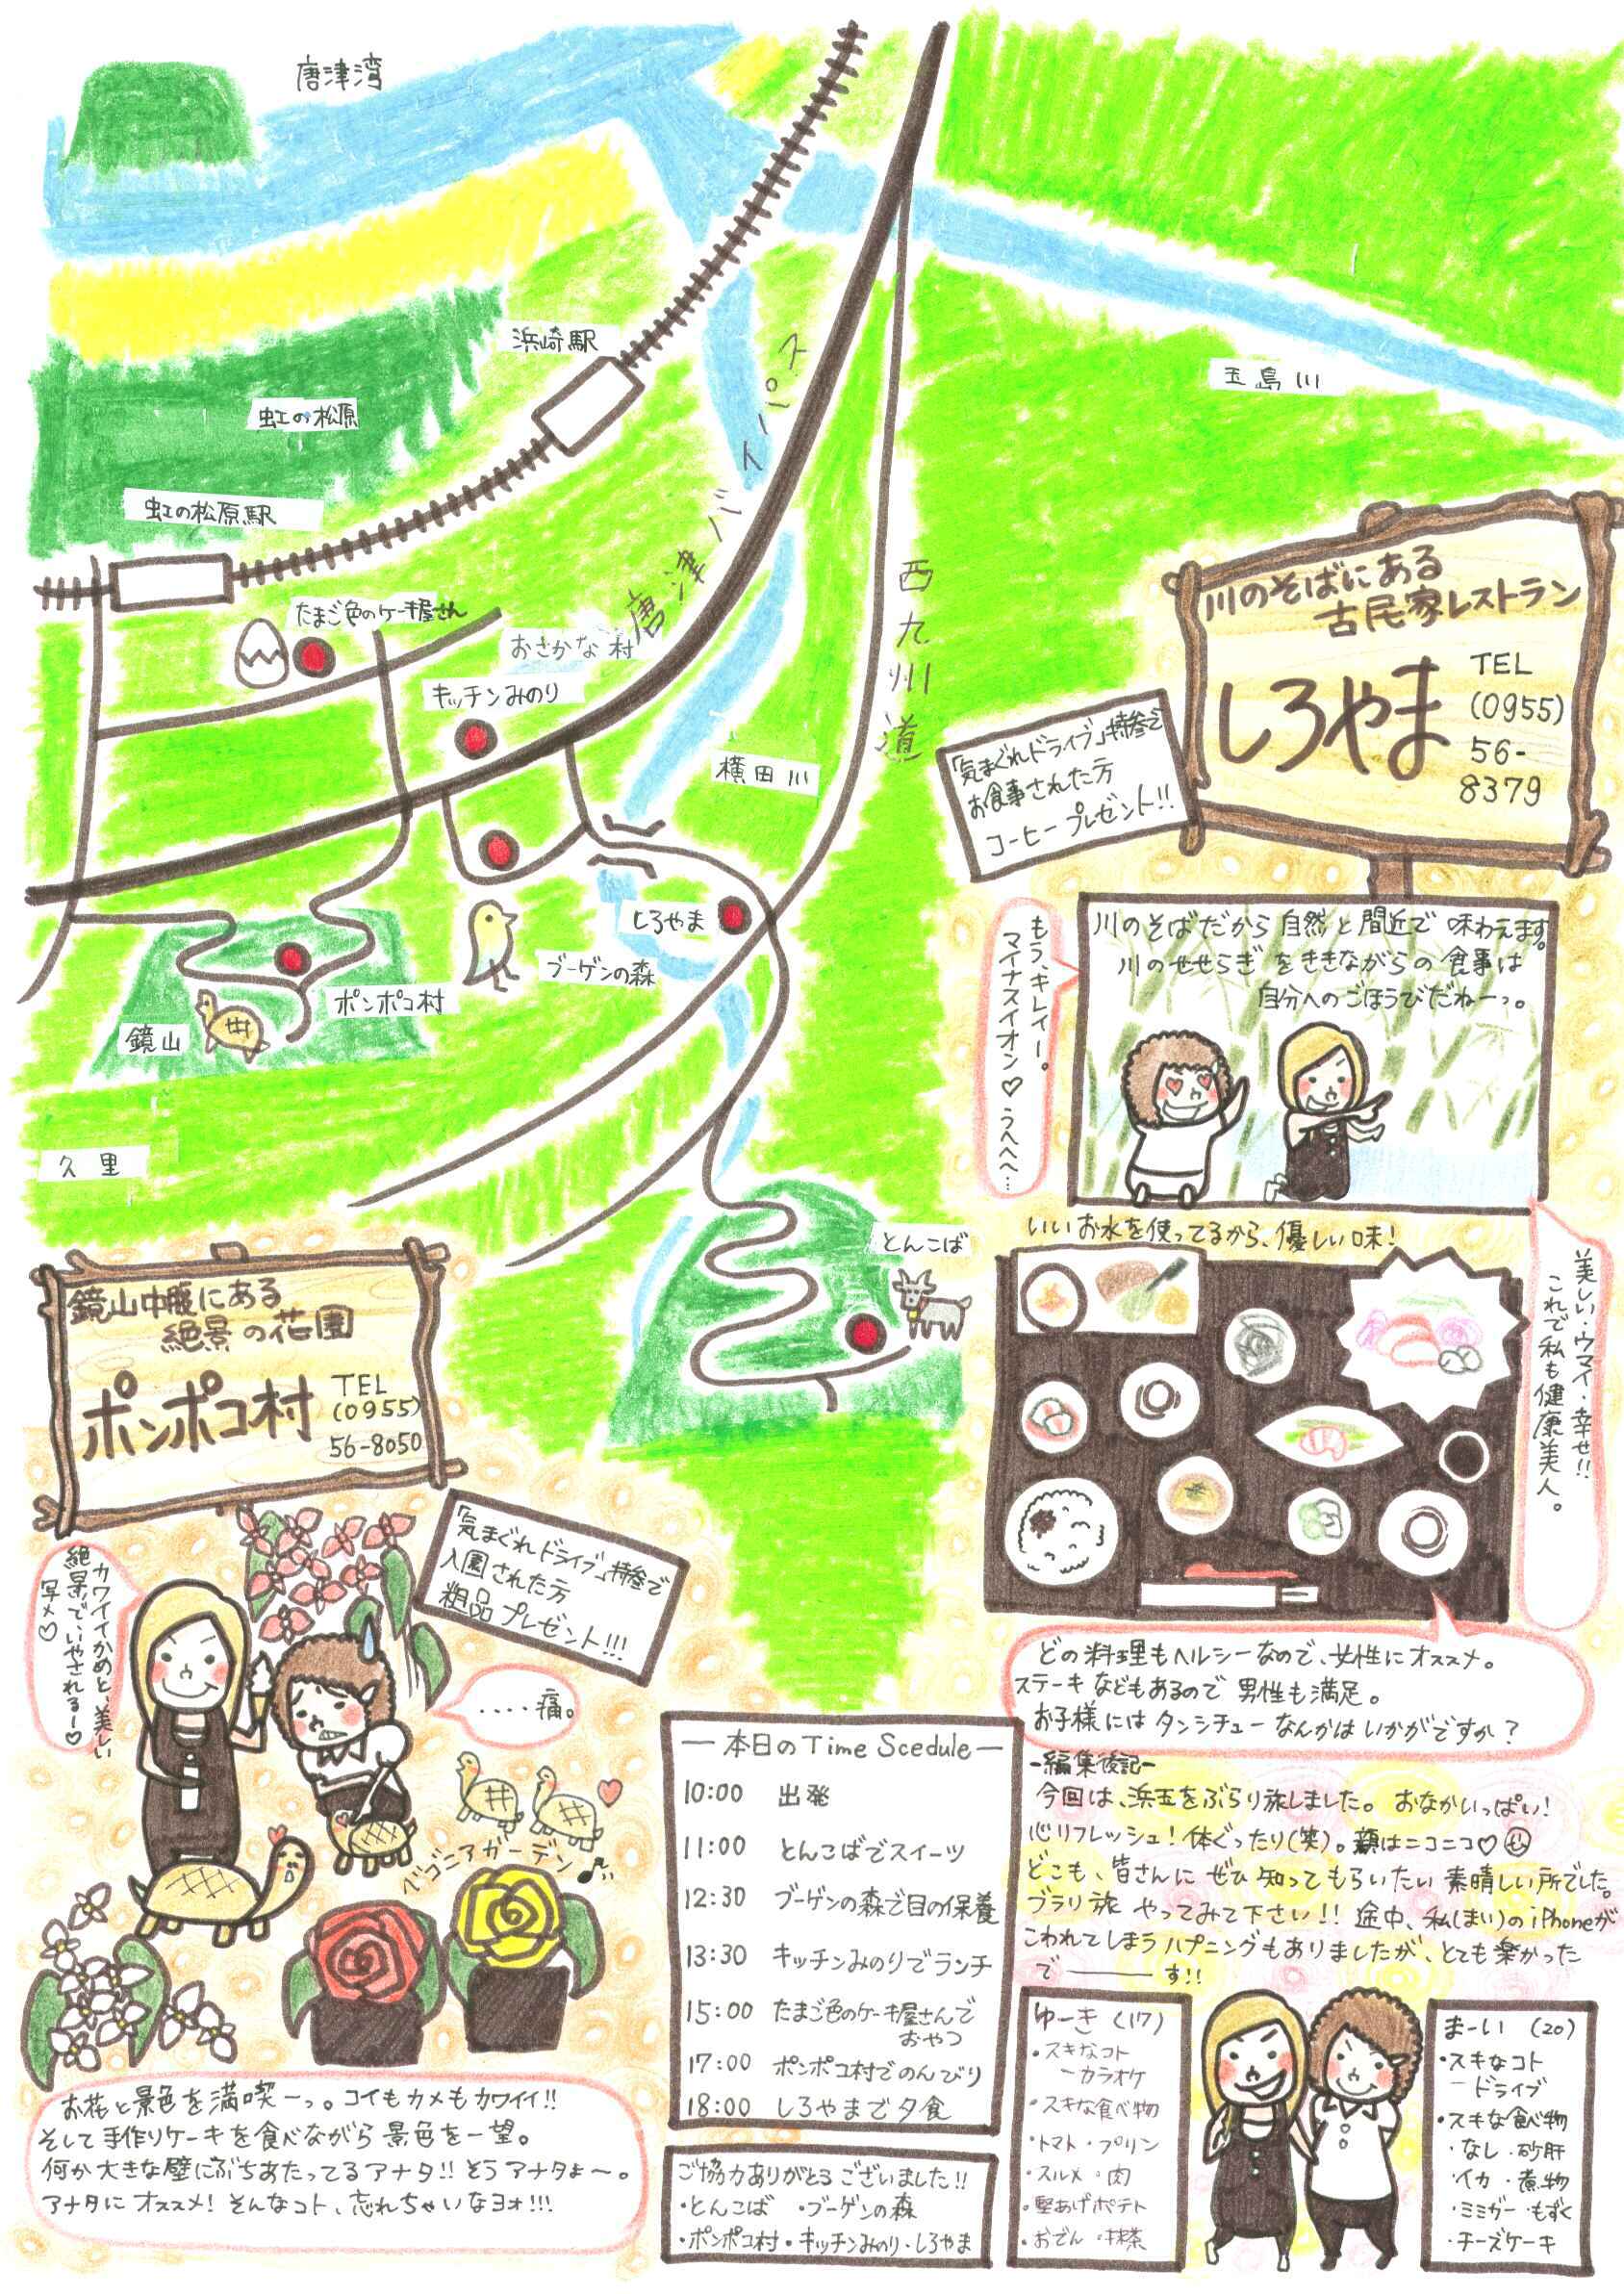 唐津湾
浜崎駅
虹の松原
虹の松原駅
玉島川
唐津バイパス
西九州道
たまご色のケーキ屋さん
おさかな村
キッチンみのり
横田川
しろやま
ブーゲンの森
ポンポコ村
鏡山
久里
とんこば
川のそばにある
古民家レストラン
しろやま
TEL
(0955)
56-
8379
「気まぐれドライブ」持参で
お食事された方
コーヒープレゼント!!
川のそばだから自然と間近で味わえます。
川のせせらぎをききながらの食事は
自分へのごほうびだねーっ。
もう、キレイー。
マイナスイオン♡うへへへ…
いいお水を使ってるから、優しい味!
美しい・ウマイ・幸せ!!
これで私も健康美人。
どの料理もヘルシーなので、女性にオススメ。
ステーキなどもあるので男性も満足。
お子様にはタンシチューなんかはいかがですか?
鏡山中腹にある
絶景の花園
ポンポコ村
TEL
(0955)
56-8050
「気まぐれドライブ」持参で
入園された方
粗品プレゼント!!!
カワイイかめと、美しい
絶景で、いやされるー♡
写メ♡
....痛。
ベゴニアガーデン♪
お花と景色を満喫ーっ。コイもカメもカワイイ!!
そして手作りケーキを食べながら景色を一望。
何か大きな壁にぶちあたってるアナタ!!そうアナタよ〜。
アナタにオススメ!そんなコト、忘れちゃいなヨォ!!!
―本日のTime Scedule―
10:00 出発
11:00 とんこばでスイーツ
12:30 ブーゲンの森で目の保養
13:30 キッチンみのりでランチ
15:00 たまご色のケーキ屋さんで
おやつ
17:00 ポンポコ村でのんびり
18:00 しろやまで夕食
ご協力ありがとうございました!!
・とんこば ・ブーゲンの森
・ポンポコ村・キッチンみのり・しろやま
-編集後記-
今回は、浜玉をぶらり旅しました。おなかいっぱい!
心リフレッシュ!体ぐったり(笑)。顔はニコニコ♡
どこも、皆さんにぜひ知ってもらいたい素晴しい所でした。
ブラリ旅やってみて下さい!!途中、私(まい)のiPhoneが
こわれてしまうハプニングもありましたが、とても楽かった
で―――す!!
ゆーき(17)
・スキなコト
―カラオケ
・スキな食べ物
・トマト・プリン
・スルメ・肉
・堅あげポテト
・おでん・抹茶
まーい(20)
・スキなコト
―ドライブ
・スキな食べ物
・なし・砂肝
・イカ・煮物
・ミミガー・もずく
・チーズケーキ